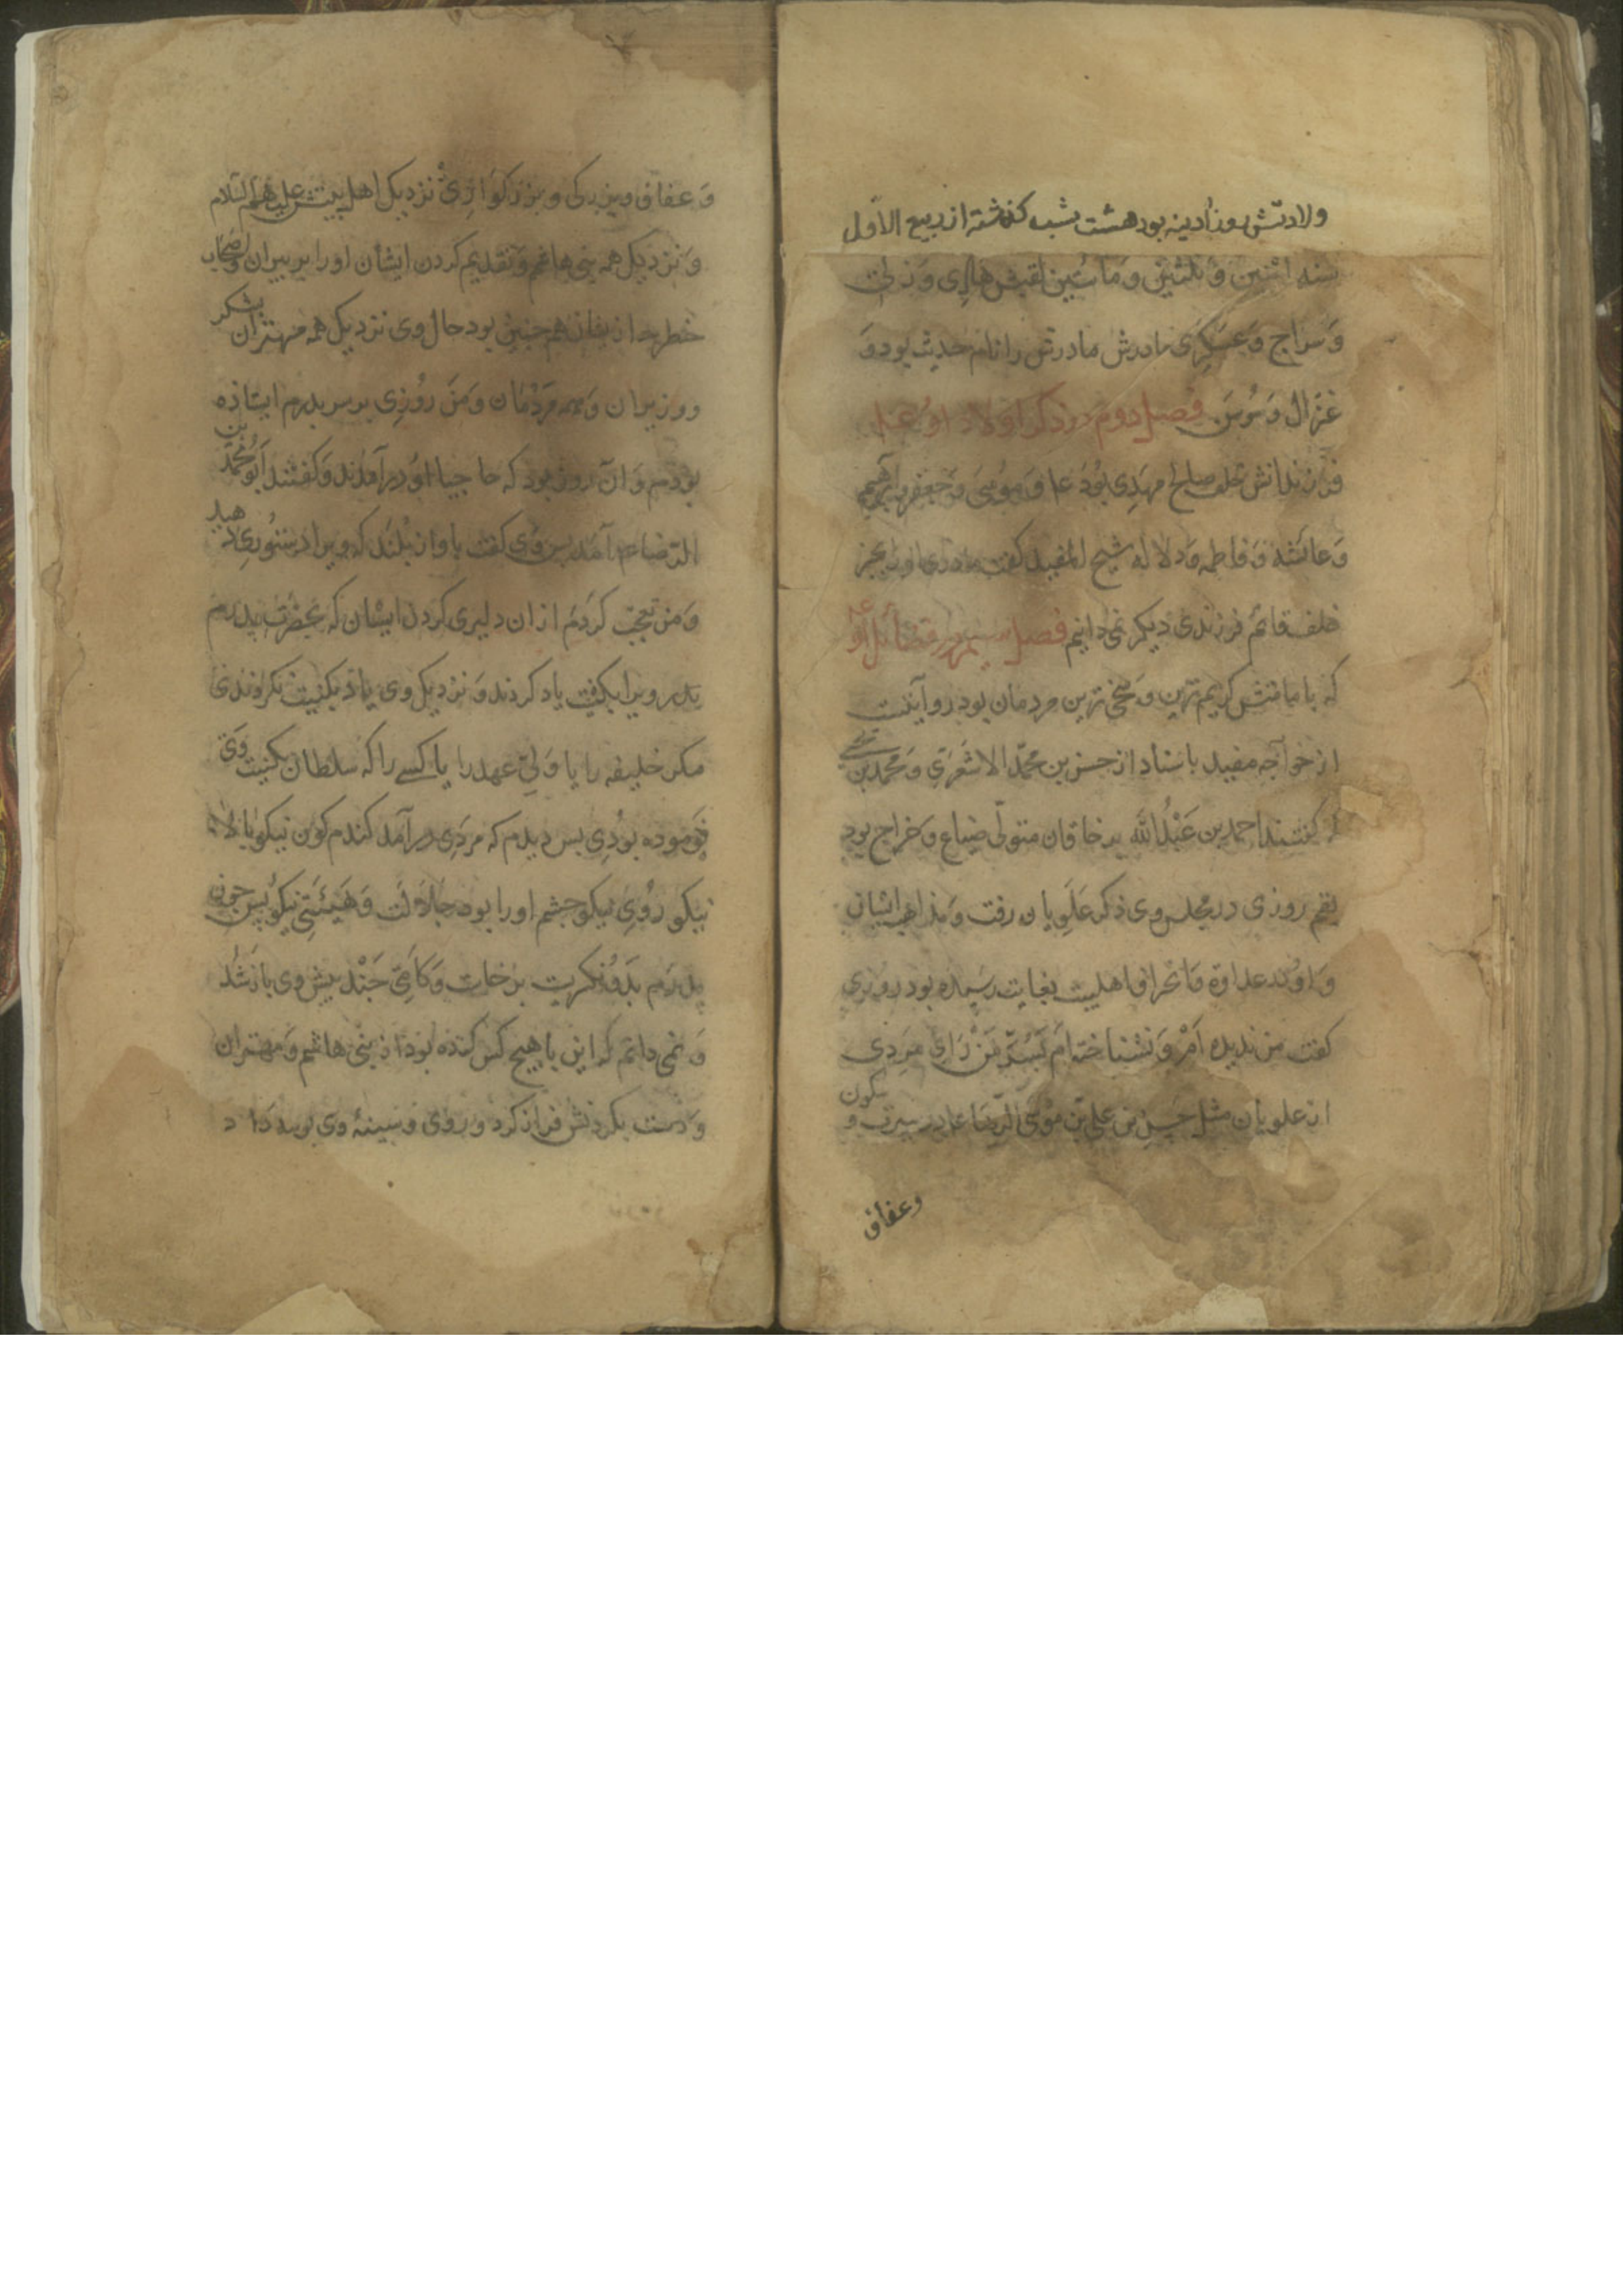 ولادتش روز آدینه بود هشت شب گذشته از ربیع الاول
سنه اثنین و ثلثین و مأتین لقبش هادی و زکی
و سراج و عسکری مادرش را نام حدیث بود و
غزال و سوسن فصل دوم در ذکر اولاد او
فرزندانش خلف صالح مهدی بود و موسی و جعفر و ابرهیم
و عائشه و فاطمه و دلاله شیخ المفید کفت
خلف قائم فرزندی دیکر نمی دانیم فصل سیم در فضائل او
که با مامتش کریم ترین و سخی ترین مردمان بود روایتست
از خواجه مفید باسناد از حسن بن محمد الاشعری و محمد بن
که کفتند احمد بن عبدالله بن خاقان متولی ضیاع و خراج بود
بقم روزی در مجلس وی ذکر علویان رفت و مذاهب ایشان
و او در عداوة و انحراف اهلبیت بغایت رسیده بود روزی
کفت من ندیده ام و نشناخته ام بسر من رای مردی
از علویان مثل حسن بن علی بن موسی الرضا در سیرت و سکون
وعفاف
و عفاف و بزرکی و بزرکواری نزدیک اهل بیتش علیهم السلام
و نزدیک همه بنی هاشم و تقدیم کردن ایشان او را بر پیران و اصحاب
خطر خود از ایشان هم چنین بود حال وی نزدیک همه مهتران لشکر
و وزیران و همه مردمان و من روزی بر سر پدرم ایستاده
بودم و آن روز بود که حاجبا او در آمدند و کفتند ابو محمد بن
الرضا آمد پس وی کفت باواز بلند که ویرا دستوری دهید
و من تعجب کردم از ان دلیری کردن ایشان که بحضرت پدرم
پدر ویرا بکنیت یاد کردند و نزدیک وی یاد بکنیت نکردندی
مکر خلیفه را یا ولی عهد را یا کسی را که سلطان بکنیت وی
فرموده بودی پس دیدم که مردی در آمد کندم کون نیکو بالا
نیکو روی نیکو چشم او را بود جلالت و هیئتی نیکو پس چون
پدرم بدو نکریت برخاست و کامی چند پیش وی باز شد
و نمی دانم که این با هیچ کس کرده بود از بنی هاشم و مهتران
و دست بکردنش فراز کرد و روی و سینۀ وی بوسه داد